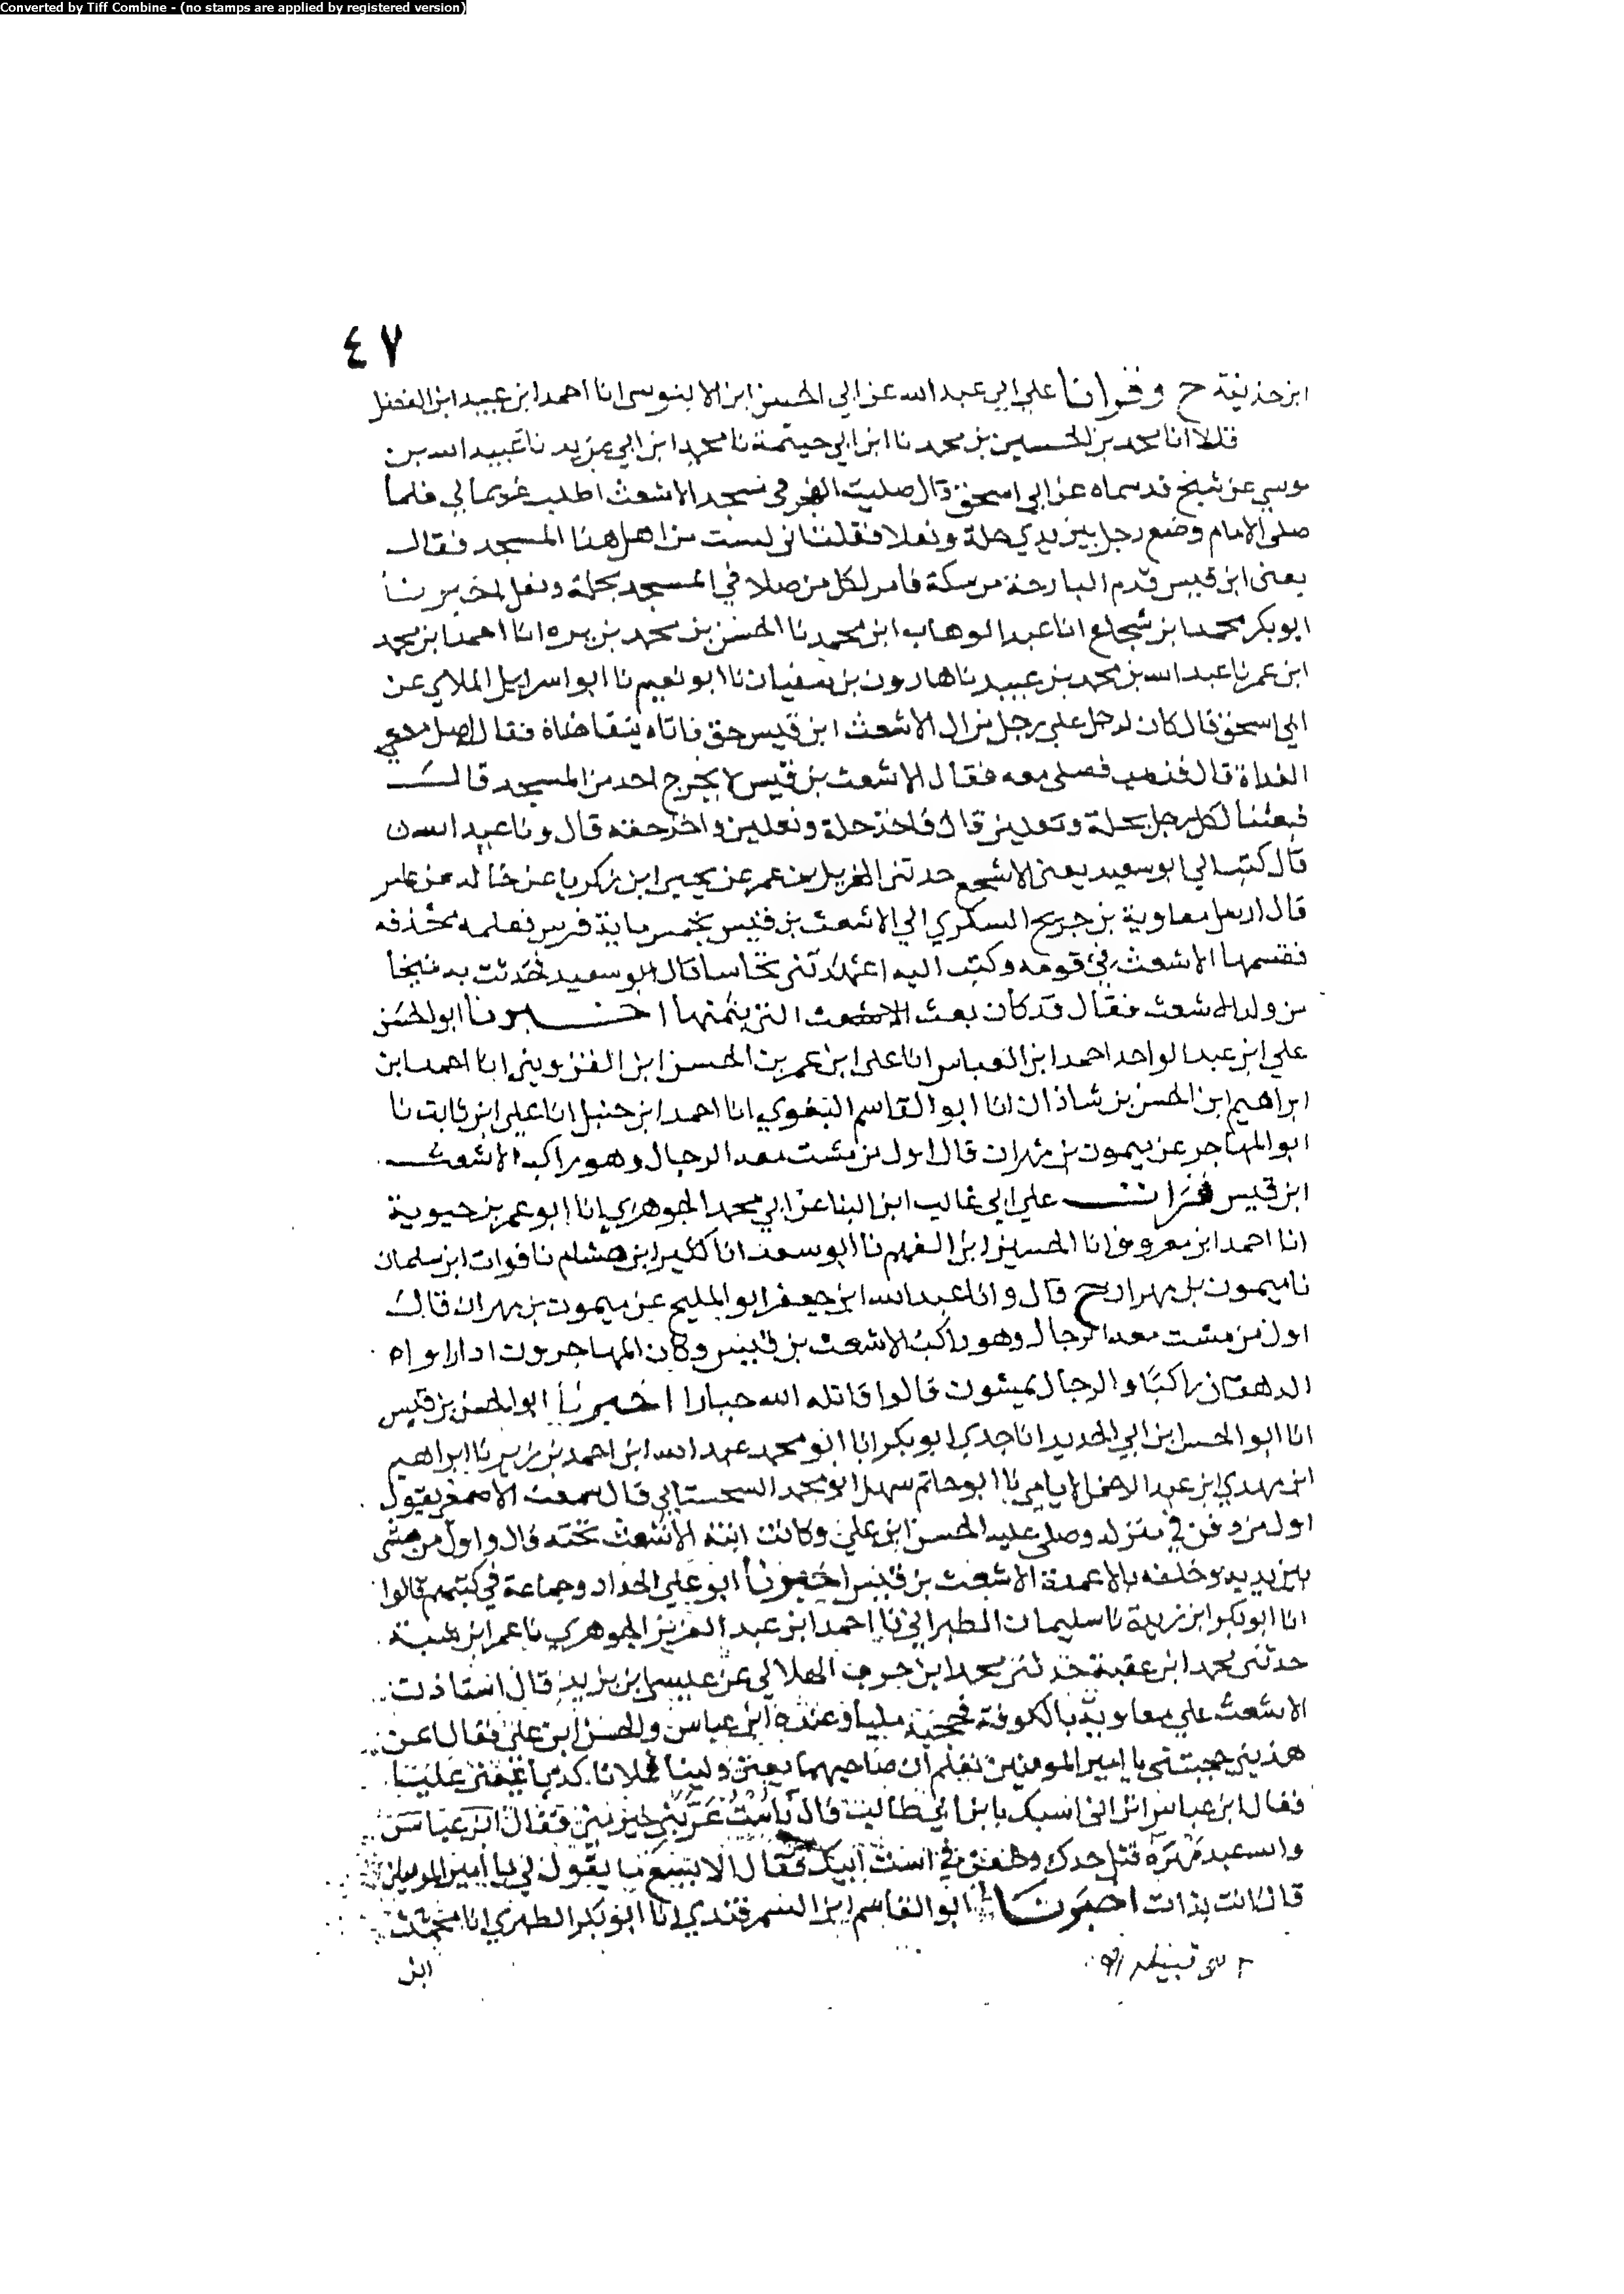 Converted by Tiff Combine - (no stamps are applied by registered version)
٤٧
ابن حذيفة ح وقرانا علي ابي عبد الله عن ابي الحسن ابن الابنوسي انا احمد ابن عبيد ابن الفضل
قالا انا محمد بن الحسين بن محمد نا ابن ابي خيثمة نا محمد ابن ابي يزيد نا عبيد الله بن
موسي عن شيخ قد سماه عن ابي اسحق قال صليت الفجر في مسجد الاشعث اطلب غريما لي فلما
صلي الامام وضع رجل بين يدي حلة ونعلا فقلت اني لست من اهل هذا المسجد فقال
يعني ابن قيس قدم البارحة من مكة فامر لكل من صلا في المسجد بحلة ونعل اخبرنا
ابو بكر محمد ابن شجاع انا عبد الوهاب ابن محمد نا الحسن بن محمد بن يوه انا احمد ابن محمد
ابن عمر نا عبد الله بن محمد بن عبيد نا هارون بن سفيان نا ابو نعيم نا ابو اسرايل الملاي عن
ابي اسحق قال كان لرجل علي رجل من ال الاشعث ابن قيس حق فاتاه يتقاضاه فقال صل معي
الغداة قال فذهب فصلي معه فقال الاشعث بن قيس لا يخرج احد من المسجد قال
فبعثنا لكل رجل بحلة ونعلين قال فاخذ حلة ونعلين واخذ حقه قال ونا عبد الله
قال كتب الي ابو سعيد يعني الاشج حدثني عن عمر عن يحيي ابن زكريا عن خالد عن عامر
قال ارسل معاوية بن خريج السكري الي الاشعث بن قيس بخمس ماية فرس
فقسمها الاشعث في قومه وكتب اليه اعهدتني نخاسا قال ابو سعيد فحدثت به شيخا
من ولد الاشعث فقال قد كان بعث الاشعث اليه بثمنها اخبرنا ابو الحسن
علي ابن عبد الواحد احمد ابن العباس انا علي ابن عمر بن الحسن ابن القزويني انا احمد ابن
ابراهيم ابن الحسن بن شاذان انا ابو القاسم البغوي انا احمد ابن حنبل انا علي ابن ثابت نا
ابو المهاجر عن ميمون بن مهران قال اول من مشت معه الرجال وهو راكب الاشعث
ابن قيس قرات علي ابي غالب ابن البنا عن ابي محمد الجوهري انا ابو عمر بن حيوية
انا احمد ابن معروف انا الحسين ابن الفهم نا ابو سعد انا كثير ابن هشام نا فرات ابن سلمان
نا ميمون بن مهران ح قال وانا عبد الله ابن جعفر ابو المليح عن ميمون بن مهران قال
اول من مشت معه الرجال وهو راكب الاشعث بن قيس وكان المهاجرون اذا راوا
الدهقان راكبا والرجال يمشون قالوا قاتله الله جبارا اخبرنا ابو الحسن بن قيس
انا ابو الحسن ابن ابي الحديد انا جدي ابو بكر انا ابو محمد عبد الله ابن احمد بن زبر نا ابراهيم
ابن مهدي ابن عبد الرحمن الايامي نا ابو حاتم سهل ابن محمد السجستاني قال سمعت الاصمعي يقول
اول من دفن في منزله وصلي عليه الحسن ابن علي وكانت ابنة الاشعث تحته قال واول من مشي
بين يديه وخلفه بالاعمدة الاشعث بن قيس اخبرنا ابو علي الحداد وجماعة في كتبهم قالوا
انا ابو بكر ابن ريذة نا سليمان الطبراني نا احمد ابن عبد العزيز الجوهري نا عمر ابن شبة
حدثني محمد ابن عقبة حدثني محمد ابن حرب الهلالي عن عيسي ابن يزيد قال استاذن
الاشعث علي معاوية بالكوفة فحجبه مليا وعنده ابن عباس والحسن ابن علي فقال اعن
هذين حجبتني يا امير المومنين تعلم ان صاحبهما يعني ولينا فملانا كذبا يعني عليا
فقال ابن عباس فقال ابن عباس
والله عبد مهرة قتل جدك وطعن في است ابيك فقال الا تسمع ما يقول لي يا امير المومنين
قال انت بدات اخبرنا ابو القاسم ابن السمرقندي انا ابو بكر الطبري انا
ابن